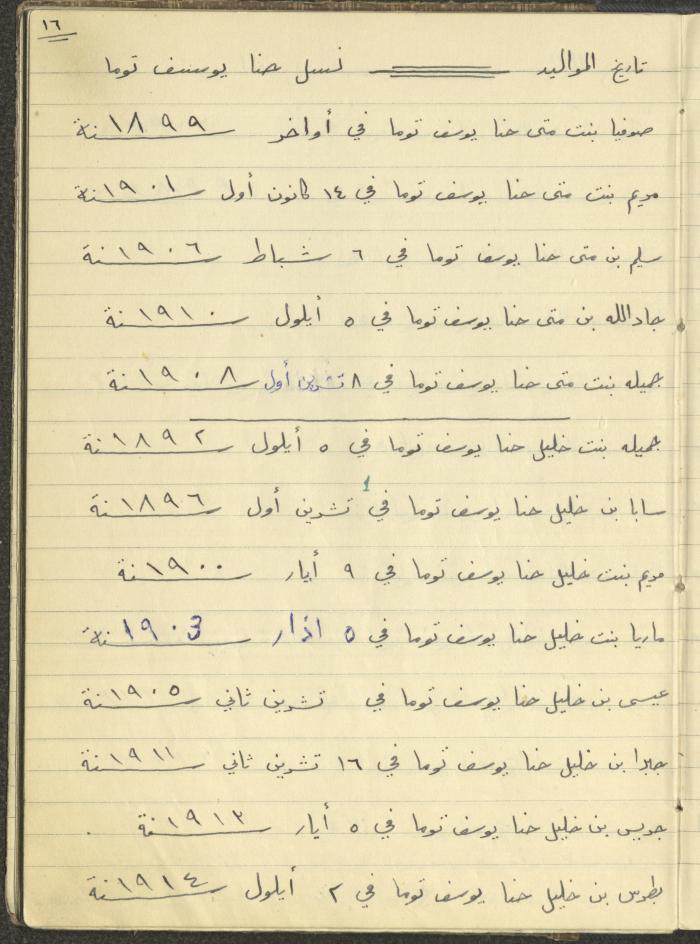 ١٦
تاريخ المواليد نسل حنا يوسف توما
صوفيا بنت متى حنا يوسف توما في أواخر سنة ١٨٩٩
مريم بنت متى حنا يوسف توما في ١٤ كانون أول سنة ١٩٠١
سليم بن متى حنا يوسف توما في ٦ شباط سنة ١٩٠٦
جادالله بن متى حنا يوسف توما في ٥ أيلول سنة ١٩١٠
جميله بنت متى حنا يوسف توما في ٨ تشرين أول سنة ١٩٠٨
جميله بنت خليل حنا يوسف توما في ٥ أيلول سنة ١٨٩٢
سابا بن خليل حنا يوسف توما في 1 تشرين أول سنة ١٨٩٦
مريم بنت خليل حنا يوسف توما في ٩ أيار سنة ١٩٠٠
ماريا بنت خليل حنا يوسف توما في ٥ اذار سنة ١٩٠3
عيسى بن خليل حنا يوسف توما في تشرين ثاني سنة ١٩٠٥
جبرا بن خليل حنا يوسف توما في ١٦ تشرين ثاني سنة ١٩١١
جريس بن خليل حنا يوسف توما في ٥ أيار سنة ١٩١٣
بطرس بن خليل حنا يوسف توما في ٢ أيلول سنة ١٩١٤